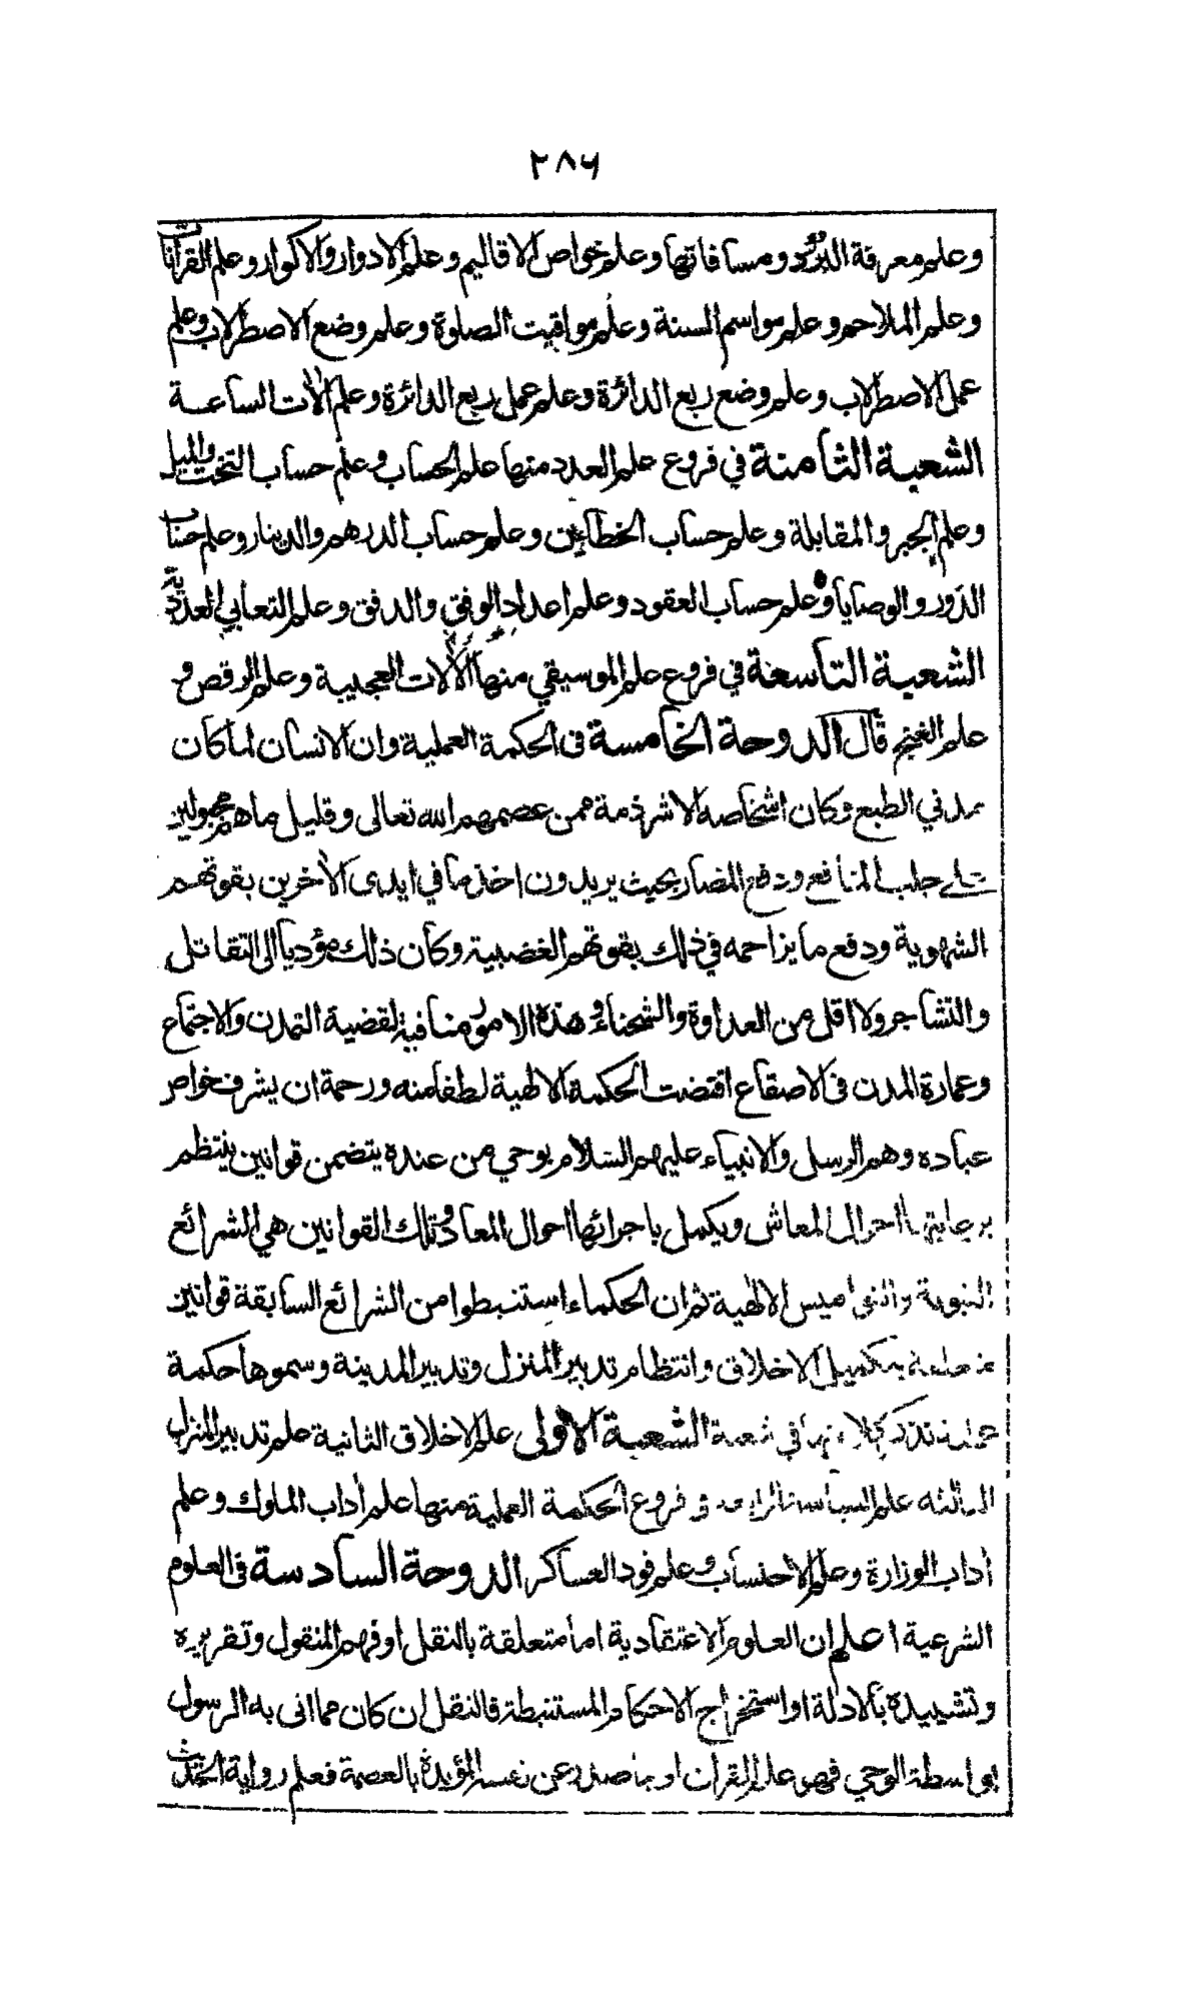 ٢٨٦
وعلم معرفة البُرُد ومسافاتها وعلم خواص الاقاليم وعلم الادوار والاكوار وعلم القرانات
وعلم الملاحم وعلم مواسم السنة وعلم مواقيت الصلوة وعلم وضع الاصطرلاب وعلم
عمل الاصطرلاب وعلم وضع ربع الدائرة وعلم عمل ربع الدائرة وعلم الآت الساعة
الشعبة الثامنة في فروع علم العدد منها علم الحساب وعلم حساب التخت والميل
وعلم الجبر والمقابلة وعلم حساب الخطاءين وعلم حساب الدرهم والدينار وعلم حساب
الدور والوصايا وعلم حساب العقود وعلم اعداد الوفق والدفق وعلم التعابي العددية
الشعبة التاسعة في فروع علم الموسيقي منها الآلات العجيبة وعلم الرقص و
علم الغنج قال الدوحة الخامسة فى الحكمة العملية وان الانسان لما كان
مدني الطبع وكان اشخاصه الا شرذمة ممن عصمهم الله تعالى وقليل ما هم مجبولين
على جلب المنافع ودفع المضار بحيث يريدون اخذ ما في ايدى الآخرين بقوتهم
الشهوية ودفع ما يزاحمه في ذلك بقوتهم الغضبية وكان ذلك مؤديا الى التقاتل
والتشاجر ولا اقل من العداوة والشحناء وهذه الامور منافية لقضية التمدن والاجتماع
وعمارة المدن فى الاصقاع اقتضت الحكمة الالهية لطفا منه ورحمة ان يشرف خواص
عباده وهم الرسل والانبياء عليهم السلام بوحي من عنده يتضمن قوانين ينتظم
برعايتها احوال المعاش ويكمل باجرائها احوال المعاد وتلك القوانين هي الشرائع
النبوية والنواميس الالهية ثم ان الحكماء استنبطوا من الشرائع السابقة قوانين
متعلقة بتكميل الاخلاق وانتظام تدبير المنزل وتدبير المدينة وسموها حكمة
عملية نذكر كلا منها في شعبة الشعبة الاولى علم الاخلاق الثانية علم تدبير المنزل
الثالثة علم السياسة الرابعة فى فروع الحكمة العملية منها علم أداب الملوك وعلم
أداب الوزارة وعلم الاحتساب وعلم قود العساكر الدوحة السادسة فى العلوم
الشرعية اعلم ان العلوم الاعتقادية اما متعلقة بالنقل او فهم المنقول وتقريره
وتشييده بالادلة او استخراج الاحكام المستنبطة فالنقل ان كان مما اتى به الرسول
بواسطة الوحي فهو علم القران او بما صدر عن نفسه المؤيدة بالعصمة فعلم رواية الحديث